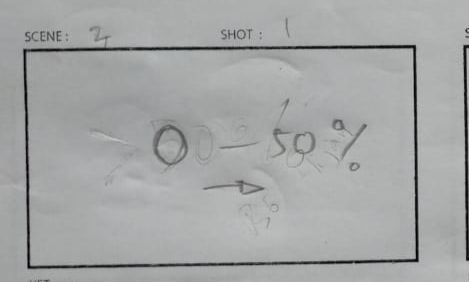 SCENE: 2 SHOT: 1
0 - 50%